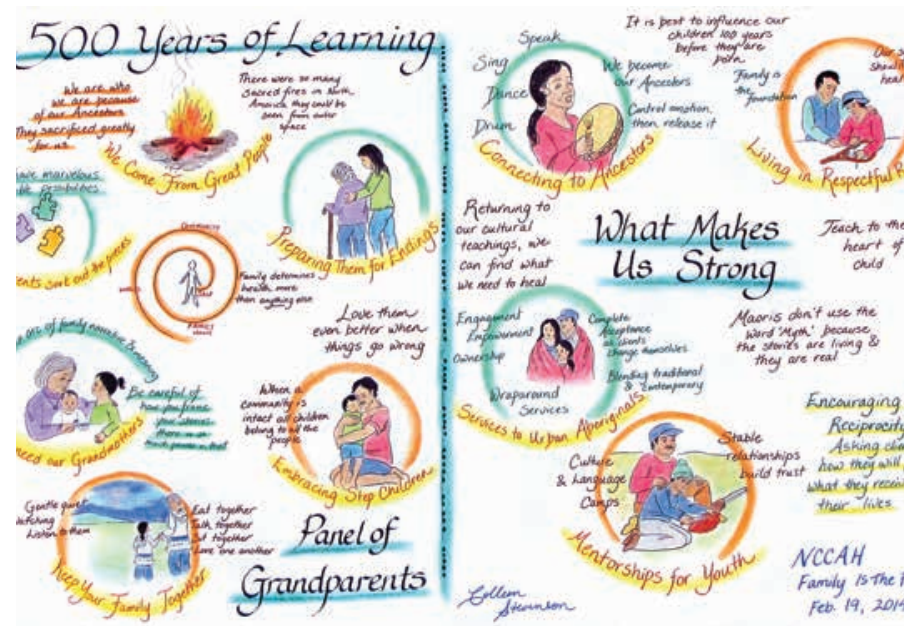 500 Years of Learning
We are who
we are because
of our Ancestors
They sacrificed greatly
for us
There were so many
Sacred fires in North
America they could be
seen from outer
space
We Come From Great People
have marvelous
possibilities
sort out the pieces
Preparing Them for Endings
Community
Family
Self
Family determines
health more
than anything else
Love them
even better when
things go wrong
arc of family narrative & meaning
Be careful of
how you frame
your stories
there is so
much power in that
need our Grandmothers
When a
community is
intact all children
belong to all the
people
Embracing Step Children
Gentle quiet
watching
Listen to them
Eat together
Talk together
Sit together
Love one another
Keep Your Family Together
Panel of
Grandparents
Speak
Sing
Dance
Drum
We become
our Ancestors
Control emotion,
then release it
Connecting to Ancestors
It is best to influence our
children 100 years
before they are
born
Family is
the foundation
Our
should
Living in Respectful
Returning to
our cultural
teachings, we
can find what
we need to heal
What Makes
Us Strong
Teach to the
heart of
child
Engagement
Empowerment
Ownership
Complete
Acceptance
as clients
change themselves
Blending traditional
& Contemporary
Wraparound
Services
Services to Urban Aboriginals
Maoris don't use the
word 'Myth' because
the stories are living &
they are real
Culture
& Language
Camps
Stable
relationships
build trust
Mentorships for Youth
Encouraging
Reciprocity
Asking
how they will
what they
their lives
Colleen
Stevenson
NCCAH
Family Is The
Feb. 19, 2014